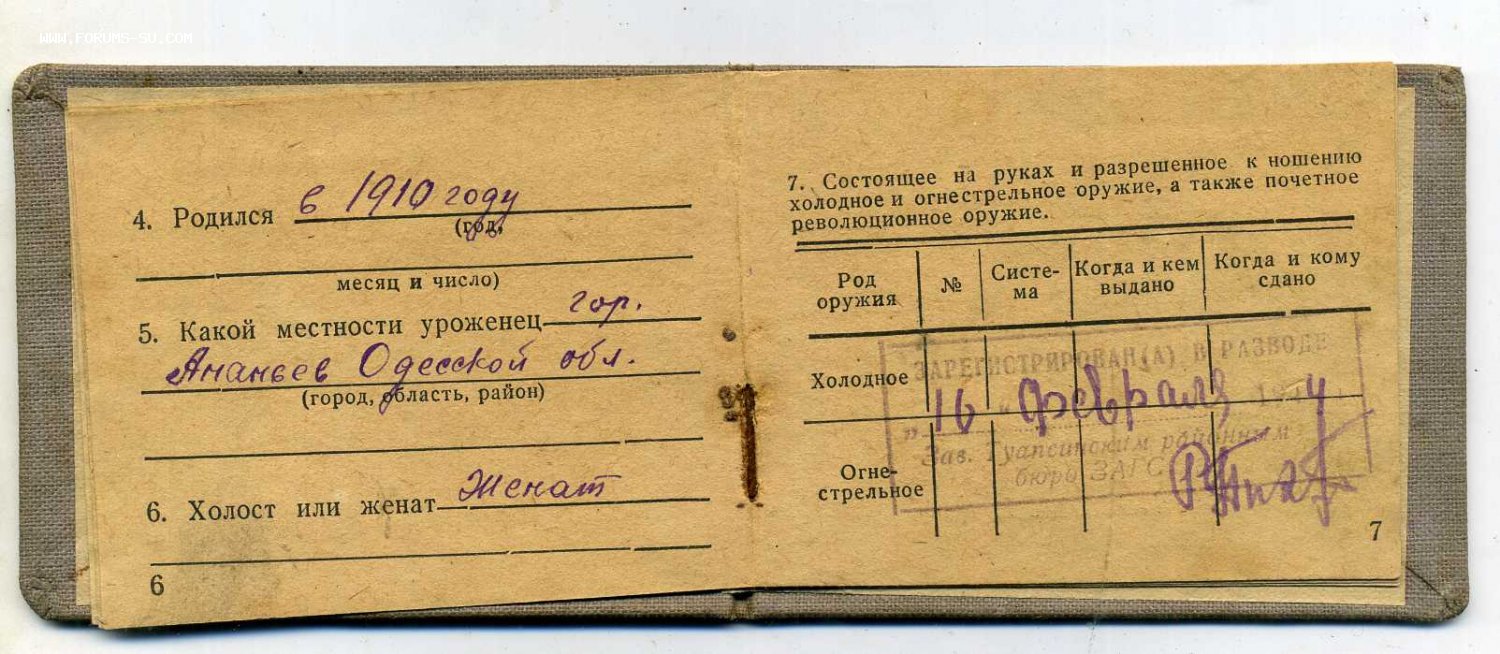 WWW.FORUMS-SU.COM
4. Родился в 1910 году
(год,
месяц и число)
5. Какой местности уроженец гор.
Ананьев Одесской обл.
(город, область, район)
6. Холост или женат Женат
6
7. Состоящее на руках и разрешенное к ношению
холодное и огнестрельное оружие, а также почетное
революционное оружие.
Род оружия
№
Систе-
ма
Когда и кем
выдано
Когда и кому
сдано
Холодное
Огне-
стрельное
ЗАРЕГИСТРИРОВАН(А) В РАЗВОДЕ
„16 " февраля 194
Зав. Туапсинским районным
бюро ЗАГС
7